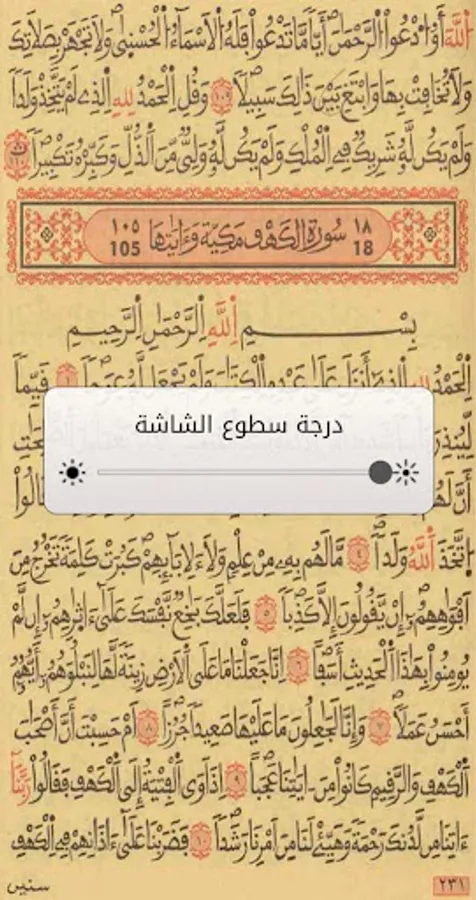 اللَّهَ أَوُ ادْعُوا الرَّحْمَٰنَ أَيًّا مَّا تَدْعُوا فَلَهُ الْأَسْمَاءُ الْحُسْنَىٰ وَلَا تَجْهَرْ بِصَلَاتِكَ
وَلَا تُخَافِتْ بِهَا وَابْتَغِ بَيْنَ ذَٰلِكَ سَبِيلًا ١٠٩ وَقُلِ الْحَمْدُ لِلهِ الَّذِي لَمْ يَتَّخِذْ وَلَدًا
وَلَمْ يَكُن لَّهُ شَرِيكٌ فِي الْمُلْكِ وَلَمْ يَكُن لَّهُ وَلِيٌّ مِّنَ الذُّلِّ وَكَبِّرْهُ تَكْبِيرًا ١١٠
١٨ 18 سُورَةُ الْكَهْفِ مَكِّيَّة وَءَايَاتُهَا ١٠٥ 105
بِسْمِ اللَّهِ الرَّحْمَٰنِ الرَّحِيمِ
الْحَمْدُ لِلهِ الَّذِي أَنزَلَ عَلَىٰ عَبْدِهِ الْكِتَابَ وَلَمْ يَجْعَل لَّهُ عِوَجًا ١ قَيِّمًا
درجة سطوع الشاشة
لِّيُنذِرَ
أَنَّ لَهُمْ
اتَّخَذَ اللَّهُ وَلَدًا ٤ مَّا لَهُم بِهِ مِنْ عِلْمٍ وَلَا لِأَبَائِهِمْ كَبُرَتْ كَلِمَةً تَخْرُجُ مِنْ
أَفْوَاهِهِمُ إِن يَقُولُونَ إِلَّا كَذِبًا ٥ فَلَعَلَّكَ بَٰخِعٌ نَّفْسَكَ عَلَىٰ ءَاثَٰرِهِمُ إِن لَّمْ
يُومِنُوا بِهَٰذَا الْحَدِيثِ أَسَفًا ٦ اِنَّا جَعَلْنَا مَا عَلَى الْأَرْضِ زِينَةً لَّهَا لِنَبْلُوَهُمُ أَيُّهُمُ
أَحْسَنُ عَمَلًا ٧ وَإِنَّا لَجَٰعِلُونَ مَا عَلَيْهَا صَعِيدًا جُرُزًا ٨ أَمْ حَسِبْتَ أَنَّ أَصْحَٰبَ
الْكَهْفِ وَالرَّقِيمِ كَانُوا مِنَ ايَٰتِنَا عَجَبًا ٩ اِذَ اوَى الْفِتْيَةُ إِلَى الْكَهْفِ فَقَالُوا رَبَّنَا
ءَاتِنَا مِن لَّدُنكَ رَحْمَةً وَهَيِّئْ لَنَا مِنَ امْرِنَا رَشَدًا ١٠ فَضَرَبْنَا عَلَىٰ ءَاذَانِهِمْ فِي الْكَهْفِ
٢٣١
سنين